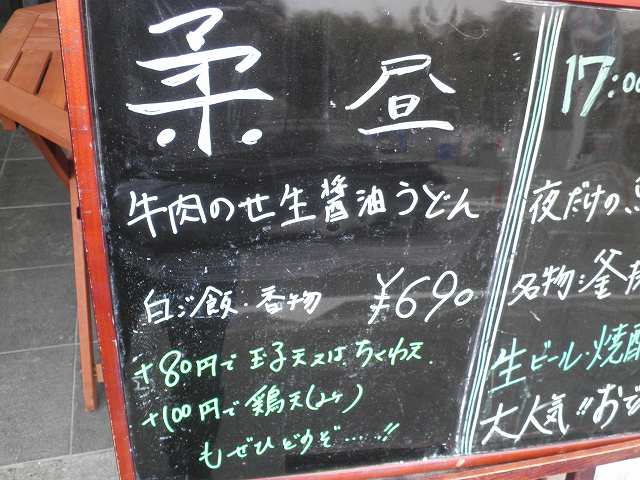 柔 昼
牛肉のせ生醤油うどん
白ご飯・香物 ¥690
+80円で 玉子天又はちくわ天
+100円で 鶏天(2ケ)
もぜひどうぞ……!!
17:00
夜だけの
名物:釜
生ビール・焼酎
大人気!!おで